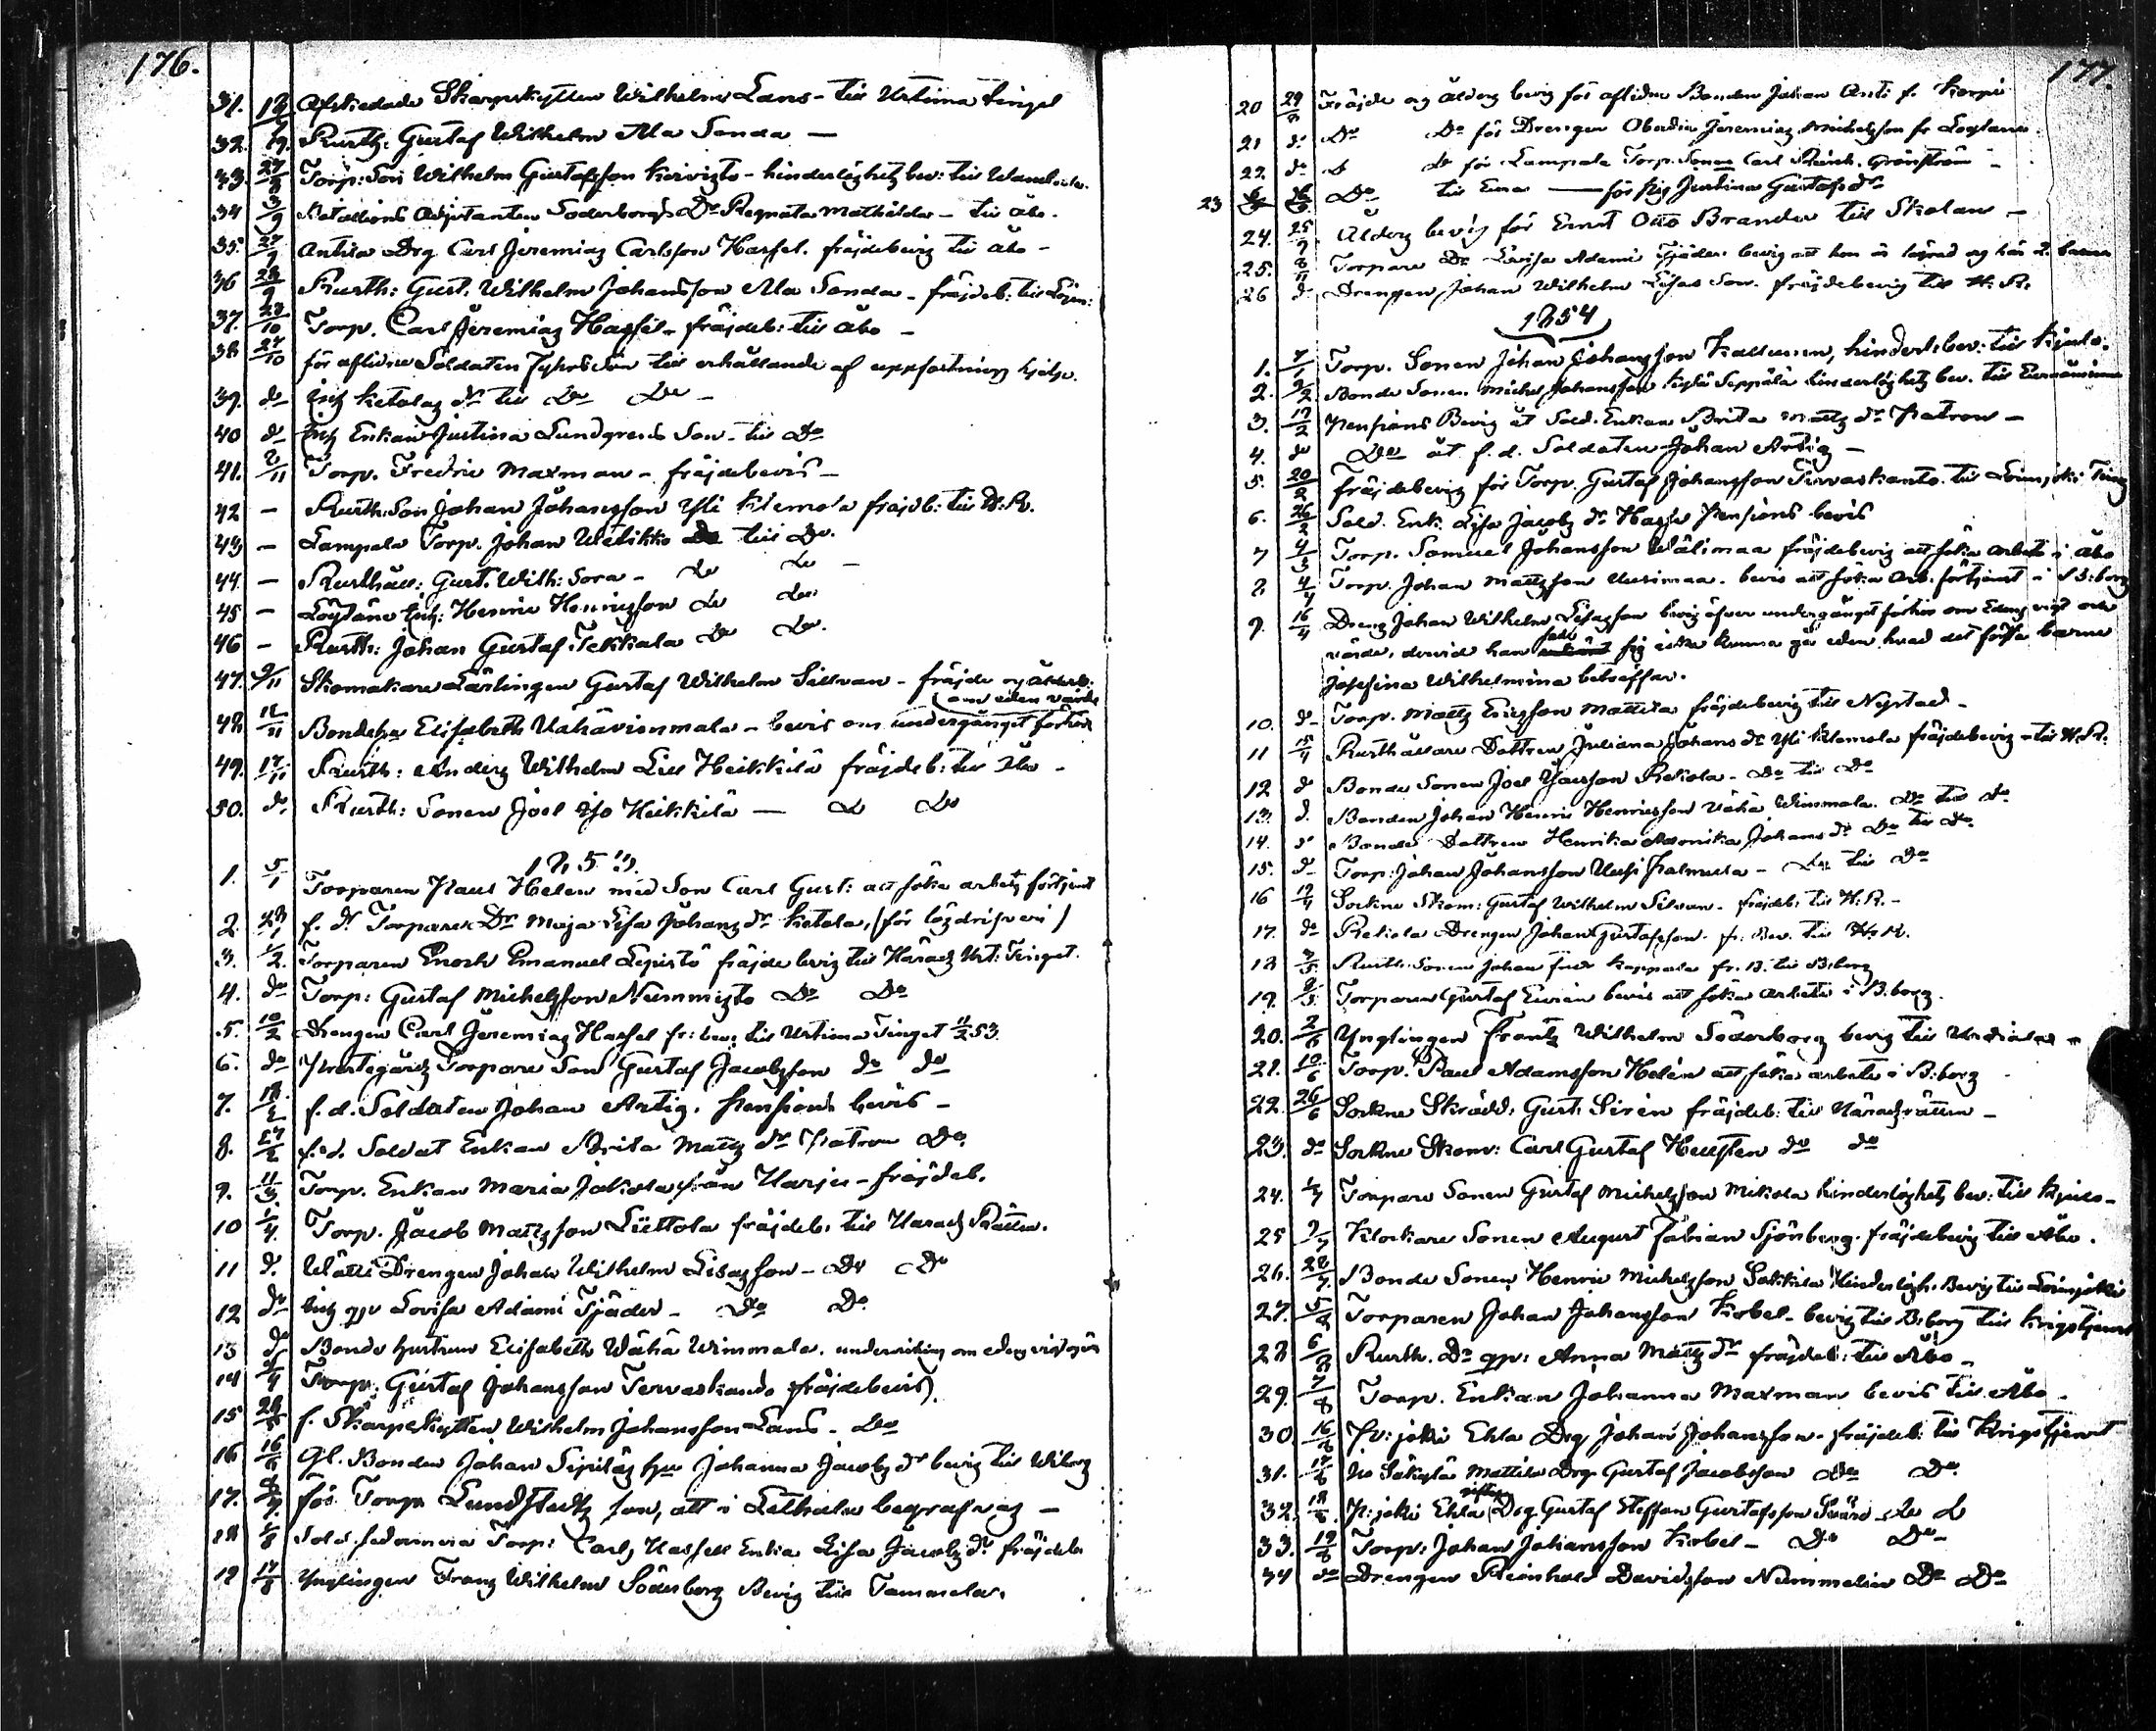 176.
31. 18/9 Afskedade Skarpskytten Wilhelm Lans - till Urtima tinget
32. 19. Rusth: Gustaf Wilhelm Ala Sonda —
33. 27/8 Torp: Son Wilhelm Gustafsson Koivisto - hinderlöshets bev: till
34 3/9 Adjutanten Söderborgs Dr Renata Mathilda - till Åbo.
35. 27/9 Antila Drg Carl Jeremias Carlsson Hassel. fräjdebevis till Åbo -
36 28/9 Rusth: Gust. Wilhelm Johansson Ala Sonda - fräjdeb: till
37. 23/10 Torp. Carl Jeremias Hassel - fräjdeb: till Åbo -
38 27/10 för aflidne Soldaten Son till erhållande af uppfostrings hjelp.
39. do Inh Ketolas dr till Do Do -
40 do Inh Enkan Justina Lundgrens Son - till Do
41. 2/11 Torp. Fredric Maxman - fräjdebevis -
42 - Rusth: Son Johan Johansson Yli Klemola fräjdb: till H.R.
43 - Lampola Torp. Johan Do till Do.
44. - Rusthåll: Gust. Wilh: Sora - Do Do -
45 - Löytäne Inh: Henric Henricsson Do Do
46 - Rusth: Johan Gustaf Tekkala Do Do.
47. 9/11 Skomakare Lärlingen Gustaf Wilhelm Sillvan - fräjde og
om eden värde
48 12/11 Elisabeth Vähävinmala - bevis om undergånget förhör
49. 17/11 Rusth: Anders Wilhelm Lill Heikkilä fräjdeb: till Åbo -
50. do. Rusth: Sonen Joel Iso Heikkilä — Do Do
1853.
1. 5/1 Torparen Paul Helen med Son Carl Gust: att söka arbets förtjenst
2. 23/1 f. d. Torparen Dr Maja Lisa Johans dr Ketola, (för lösdrifveri)
3. 1/2. Torparen Enoch Emanuel Lepistö fräjde bevis till Härads Urt: Tinget.
4. do Torp: Gustaf Michelsson Nummisto Do Do
5. 10/2 Drengen Carl Jeremias Hassel fr: bev: till Urtima Tinget 11/2 53
6. do Prestegårds Torpare Son Gustaf Jacobsson do do
7. 18/2 f. d. Soldaten Johan Artig. Pensions bevis -
8. 27/2 f. d. Soldat Enkan Brita Matts dr Patron Do
9. 11/3. Torp. Enkan Maria Jakola från Harju - fräjdeb.
10 1/4. Torp. Jacob Mattsson Liettola fräjdeb: till Härads Rätten.
11 d. Drengen Johan Wilhelm Lisasson - Do Do
12 do Inh qp Lovisa Adami Tjäder - Do Do
13 do Bonde hustrun Elisabeth Wähä Wimmala. undervisning om edens
14 9/4 Torp: Gustaf Johansson Tervaskando fräjdebevis.
15 28/5 f. Skarpskytten Wilhelm Johansson Lans - Do
16 16/6 Gl. Bonden Johan hu Johanna Jacobs dr bevis till Wiborg
17. för Torp. Lundstedts son, att i Letala begrafvas -
18 1/8 Torp: Carls Hassell Enka Lisa Jacobs dr fräjdeb.
19 17/8 Ynglingen Frans Wilhelm Söderborg Bevis till Tammela.
177.
20 29/8 Fräjde og ålders bevis för aflidne Bonden Johan Anti f. Korpi
21 d: Do Do för Drengen Jeremias Michelsson fr
22. do D do för Lampola Torp: Sonen Carl Reinh. Grönström -
23 Do till Eura — för pig Justina Gustafs dr
24. 25/9 Ålders bevis för Ernst Otto Brander till Skolan -
25. 8/11 Torpare Dr Lovisa Adami Tjäder: bevis att hon är lägrad og har 2. barn
26 d: Drengen Johan Wilhelm Lisas Son. fräjdebevis till H.R.
1854
1. 7/1 Torp. Sonen Johan Johansson Kallunen, hinderl: bev: till Kjulo.
2. 9/2 Bonde Sonen Michel Johansson Seppälä hinderlöshets bev. till Euraåminne
3. 17/2 Pensions Bevis åt Sold. Enkan Brita Matts dr Patron -
4. do Do åt f. d. Soldaten Johan Artig -
5. 20/2 fräjdebevis för Torp. Gustaf Johansson Tervaskanto. till Loimijoki Ting
6. 26/2 Sold. Enk. Lisa Jacobs dr Hassel Pensions bevis
7 4/3 Torp. Samuel Johansson Wälimaa fräjdebevis att söka arbete i Åbo
8 4/4 Torp. Johan Mattsson Uusimaa. bevis att söka Arb. förtjenst i B:borg
9. 16/4 Dreng Johan Wilhelm Lisasson bevis öfver undergånget förhör om Edens vigt och
värde, dervid han sade sig icke kunna gå eden hvad det första barnet
Josefina Wilhelmina beträffar.
10. d- Torp. Matts Ericsson Mattila fräjdebevis till Nystad -
11 15/4 Rusthållare Dottren Juliana Johans dr Yli Klemola fräjdebevis till H.R.
12 d Bonde Sonen Joel Rekola - Do till Do
13. d. Bonden Johan Henric Henricsson Vähä Wimmala. Do till do
14. d Bonde Dottren Henrika Johans dr Do till Do.
15. d- Torp: Johan Johansson - Do till Do
16 17/4 Sockne Skom: Gustaf Wilhelm Silvan. fräjdeb: till H.R. -
17. do Rekola Drengen Johan Gustafsson. fr. Bev. till H.R.
18 3/5 Rusth: Sonen Johan fr. B. till B:borg
19. 8/5 Torparen Gustaf bevis att söka Arbete i B.borg.
20. 2/6 Ynglingen Frantz Wilhelm Söderborg bevis till
21. 10/6 Torp. Paul Adamsson Helén att söka arbete i B:borg
22. 26/6 Sockne Skrädd: Gust: Sirén fräjdeb: till Häradsrätten -
23. do Sockne Skom: Carl Gustaf Hellsten do do
24. 1/7 Torpare Sonen Gustaf Michelsson Mikola hinderlöshets bev: till Kjulo -
25 9/7 Klockare Sonen August Fabian Sjönberg. fräjdebevis till Åbo.
26. 28/7. Bonde Sonen Henric Michelsson Hinderlösh. Bevis till Loimijoki
27. 5/8 Torparen Johan Johansson Kobel - bevis till B:borg till krigstjenst
28 6/8 Rusth. Dr qp: Anna Matts dr fräjdeb: till Åbo -
29. 7/8 Torp. Enkan Johanna Maxman bevis till Åbo -
30. 16/8 P: joki Ehla Drg Johan Johansson - fräjdeb: till Krigstjenst
31. 17/8 Iso Säkylä Mattila Drg. Gustaf Jacobsson Do Do.
32. 18/8 P: joki Ehla Drg Gustaf Steffan Gustafsson Svärd - Do D
33. 19/8 Torp: Johan Johansson Kobel - Do Do -
34 do Drengen Reinhold Davidsson Nummelin Do Do